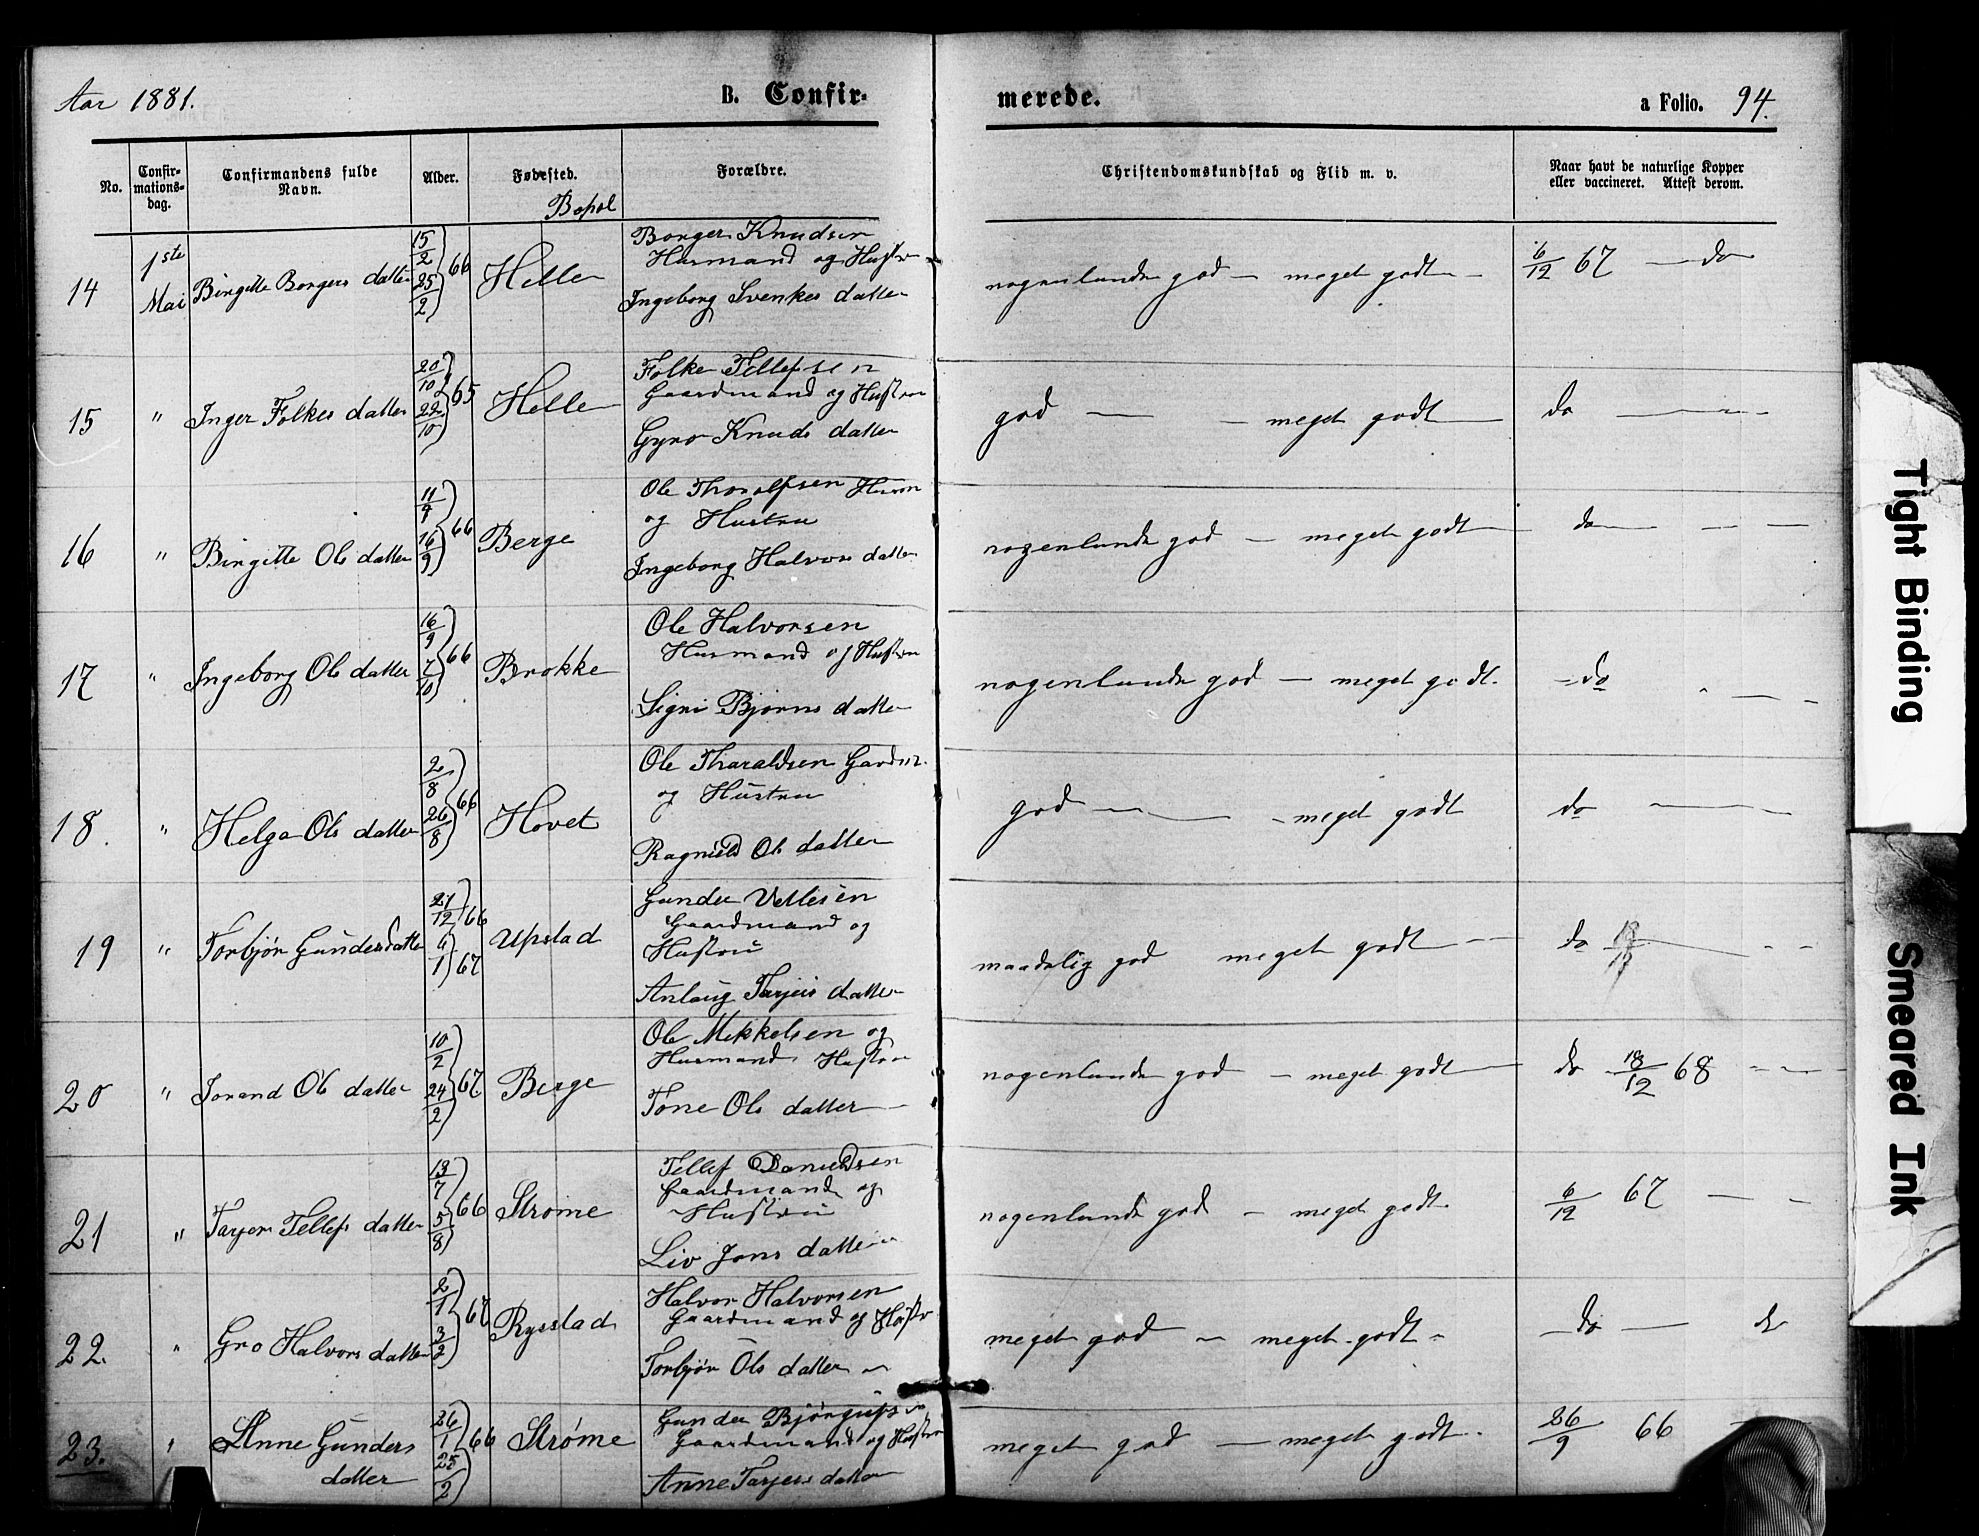 Aar 1881. B. Confir- merede. a Folio. 94.
No. Confir-mations-dag. Confirmandens fulde Navn. Alder. Fødested. Bopæl Forældre. Christendomskundskab og Flid m. v. Naar havt de naturlige Kopper eller vaccineret. Attest derom.
Borger Knudsen
14 1ste Mai Birgitte Borgers datter 15/2 25/2 66 Helle Husmand og Hustru nogenlunde god — meget godt — 6/12 67 — do
Ingeborg Svenkes datter
Folke Tellefsen
15 " Inger Folkes datter 20/10 22/10 65 Helle Gaardmand og Hustru god — — meget godt do — — —
Gyro Knuds datter
Ole Thorolfsen Husm
16 " Birgitte Ols datter 11/9 16/9 66 Berge og Hustru nogenlunde god — meget godt do — — —
Ingeborg Halvors datter
Ole Halvorsen
17 " Ingeborg Ols datter 16/9 7/10 66 Brokke Husmand og Hustru nogenlunde god — meget godt. — do — —
Signi Bjørns datter
Ole Tharaldsen Gardm.
18. " Helga Ols datter 2/8 26/8 66 Hovet og Hustru god — — meget godt do —
Ragnild Ols datter
Gunder Vetlesen
19 " Torbjør Gundersdatter 27/12 66 4/1 67 Upstad Gaardmand og Hustru maadelig god meget godt — do — —
Anlaug Tarjeis datter
Ole Mikkelsen og
20 " Jorand Ols datter 10/2 24/2 67 Berge Husmand Hustru nogenlunde god — meget godt do 18/12 68 — —
Tone Ols datter —
Tellef Danielsen
21 " Tarjer Tellefs datter 13/7 5/8 66 Strøme Gaardmand og Hustru nogenlunde god — meget godt. 6/12 67 — —
Liv Jons datter
Halvor Halvorsen
22. " Gro Halvors datter 2/1 3/2 67 Rysstad Gaardmand og Hustr meget god — meget godt — — do — do
Torbjør Ols datter —
Gunder Bjørgufs
23. " Anne Gunders datter 26/1 25/2 66 Strøme Gaardmand og Hustru meget god — meget godt. 26/9 66 —
Anne Tarjeis datter
Tight Binding
Smeared Ink